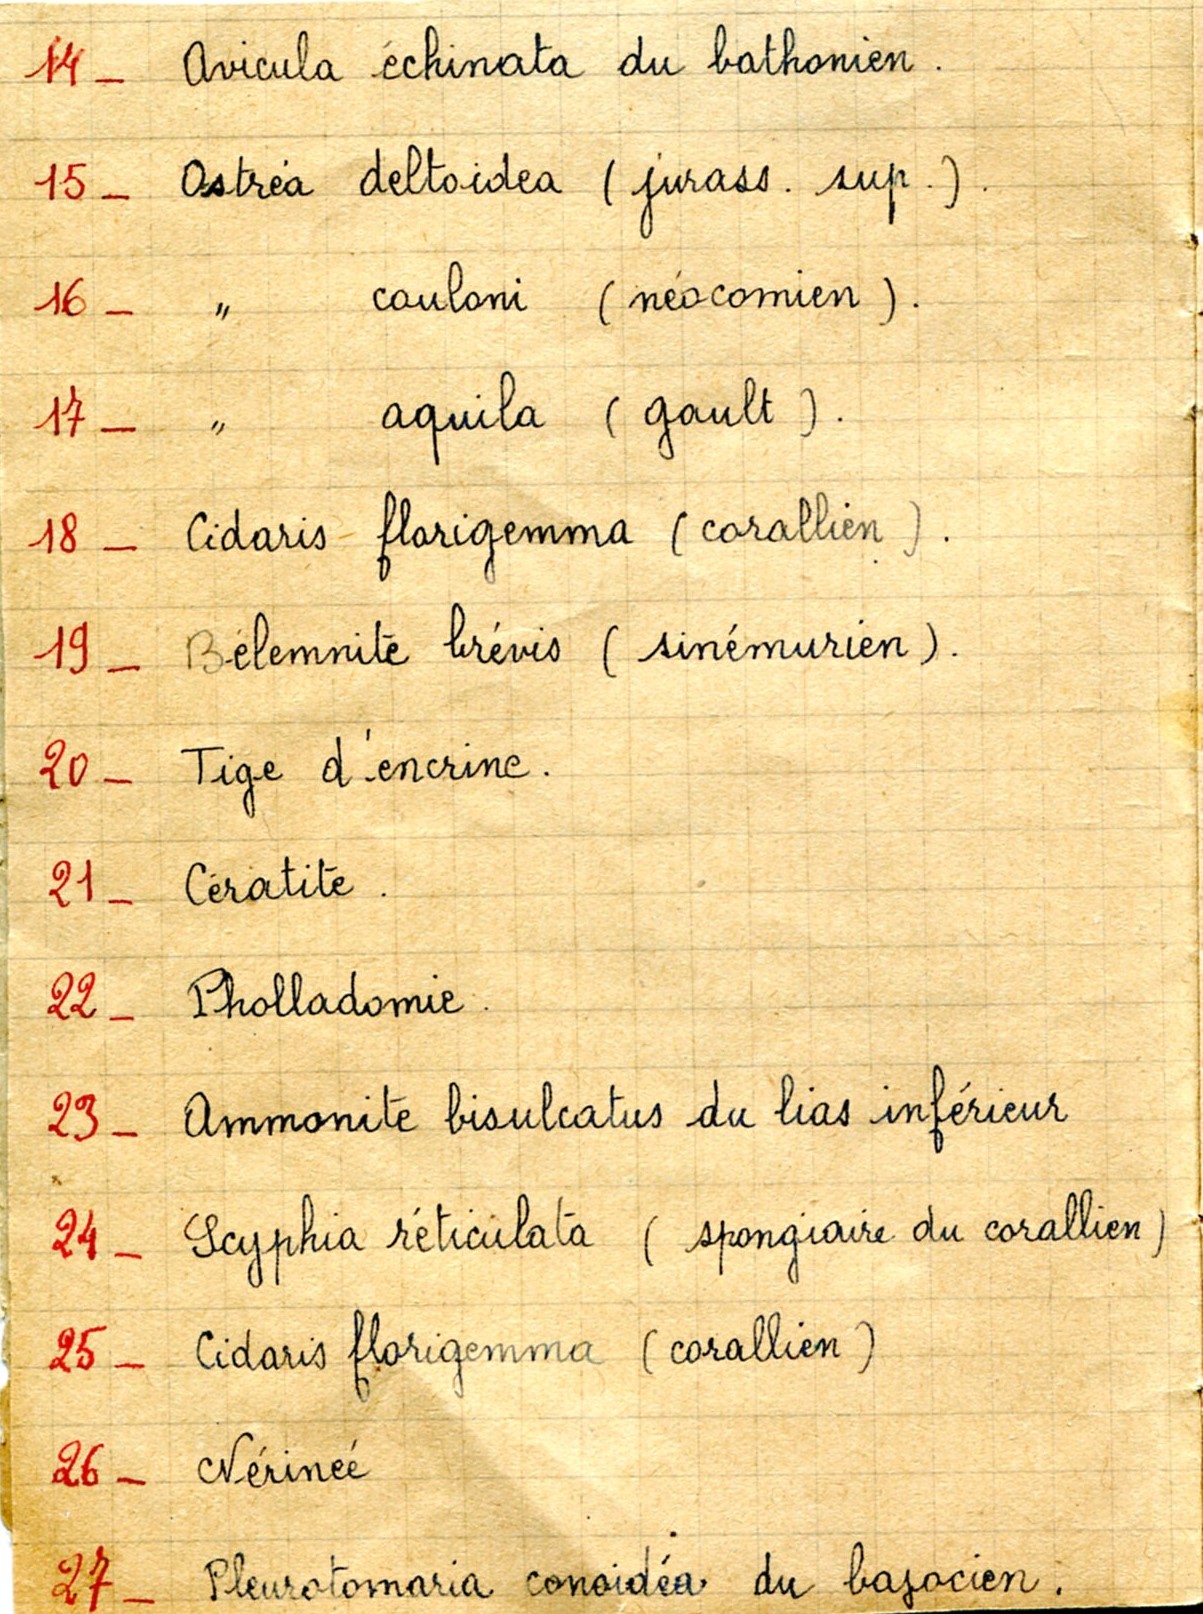 14 - Avicula échinata du bathonien.
15 - Ostréa deltoidea (jurass. sup.).
16 - " couloni (néocomien).
17 - " aquila (gault).
18 - Cidaris florigemma (corallien).
19 - Bélemnite brévis (sinémurien).
20 - Tige d'encrine.
21 - Cératite.
22 - Pholladomie.
23 - Ammonite bisulcatus du lias inférieur
24 - Scyphia réticulata (spongiaire du corallien)
25 - Cidaris florigemma (corallien)
26 - Nérineé
27 - Pleurotomaria conoidéa du bajocien.